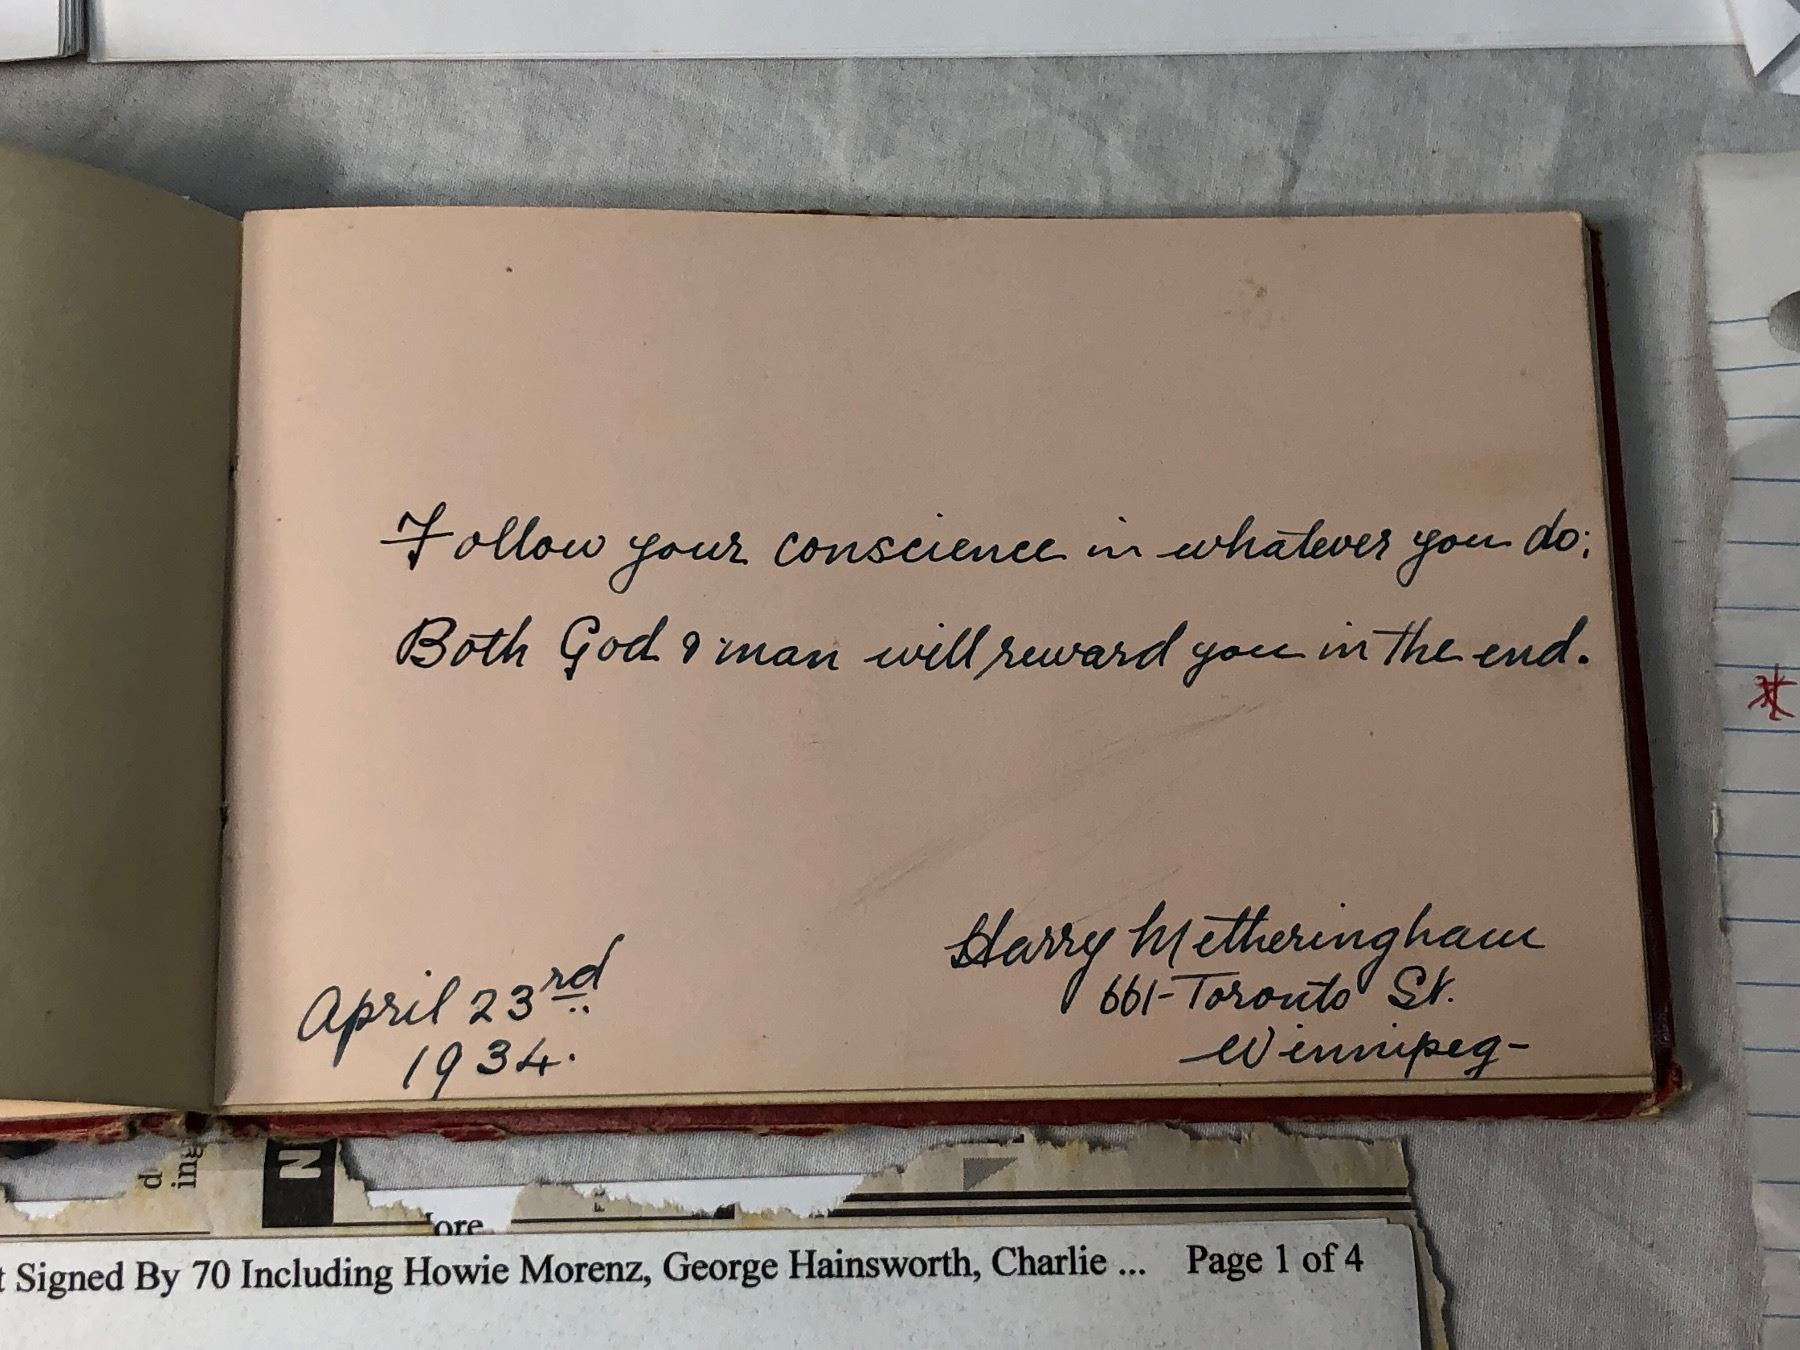 Follow your conscience in whatever you do;
Both God & man will reward you in the end.
Harry Metheringham
661-Toronto St.
Winnipeg-
April 23rd
1934.
d
ing
N
ore
t Signed By 70 Including Howie Morenz, George Hainsworth, Charlie ... Page 1 of 4